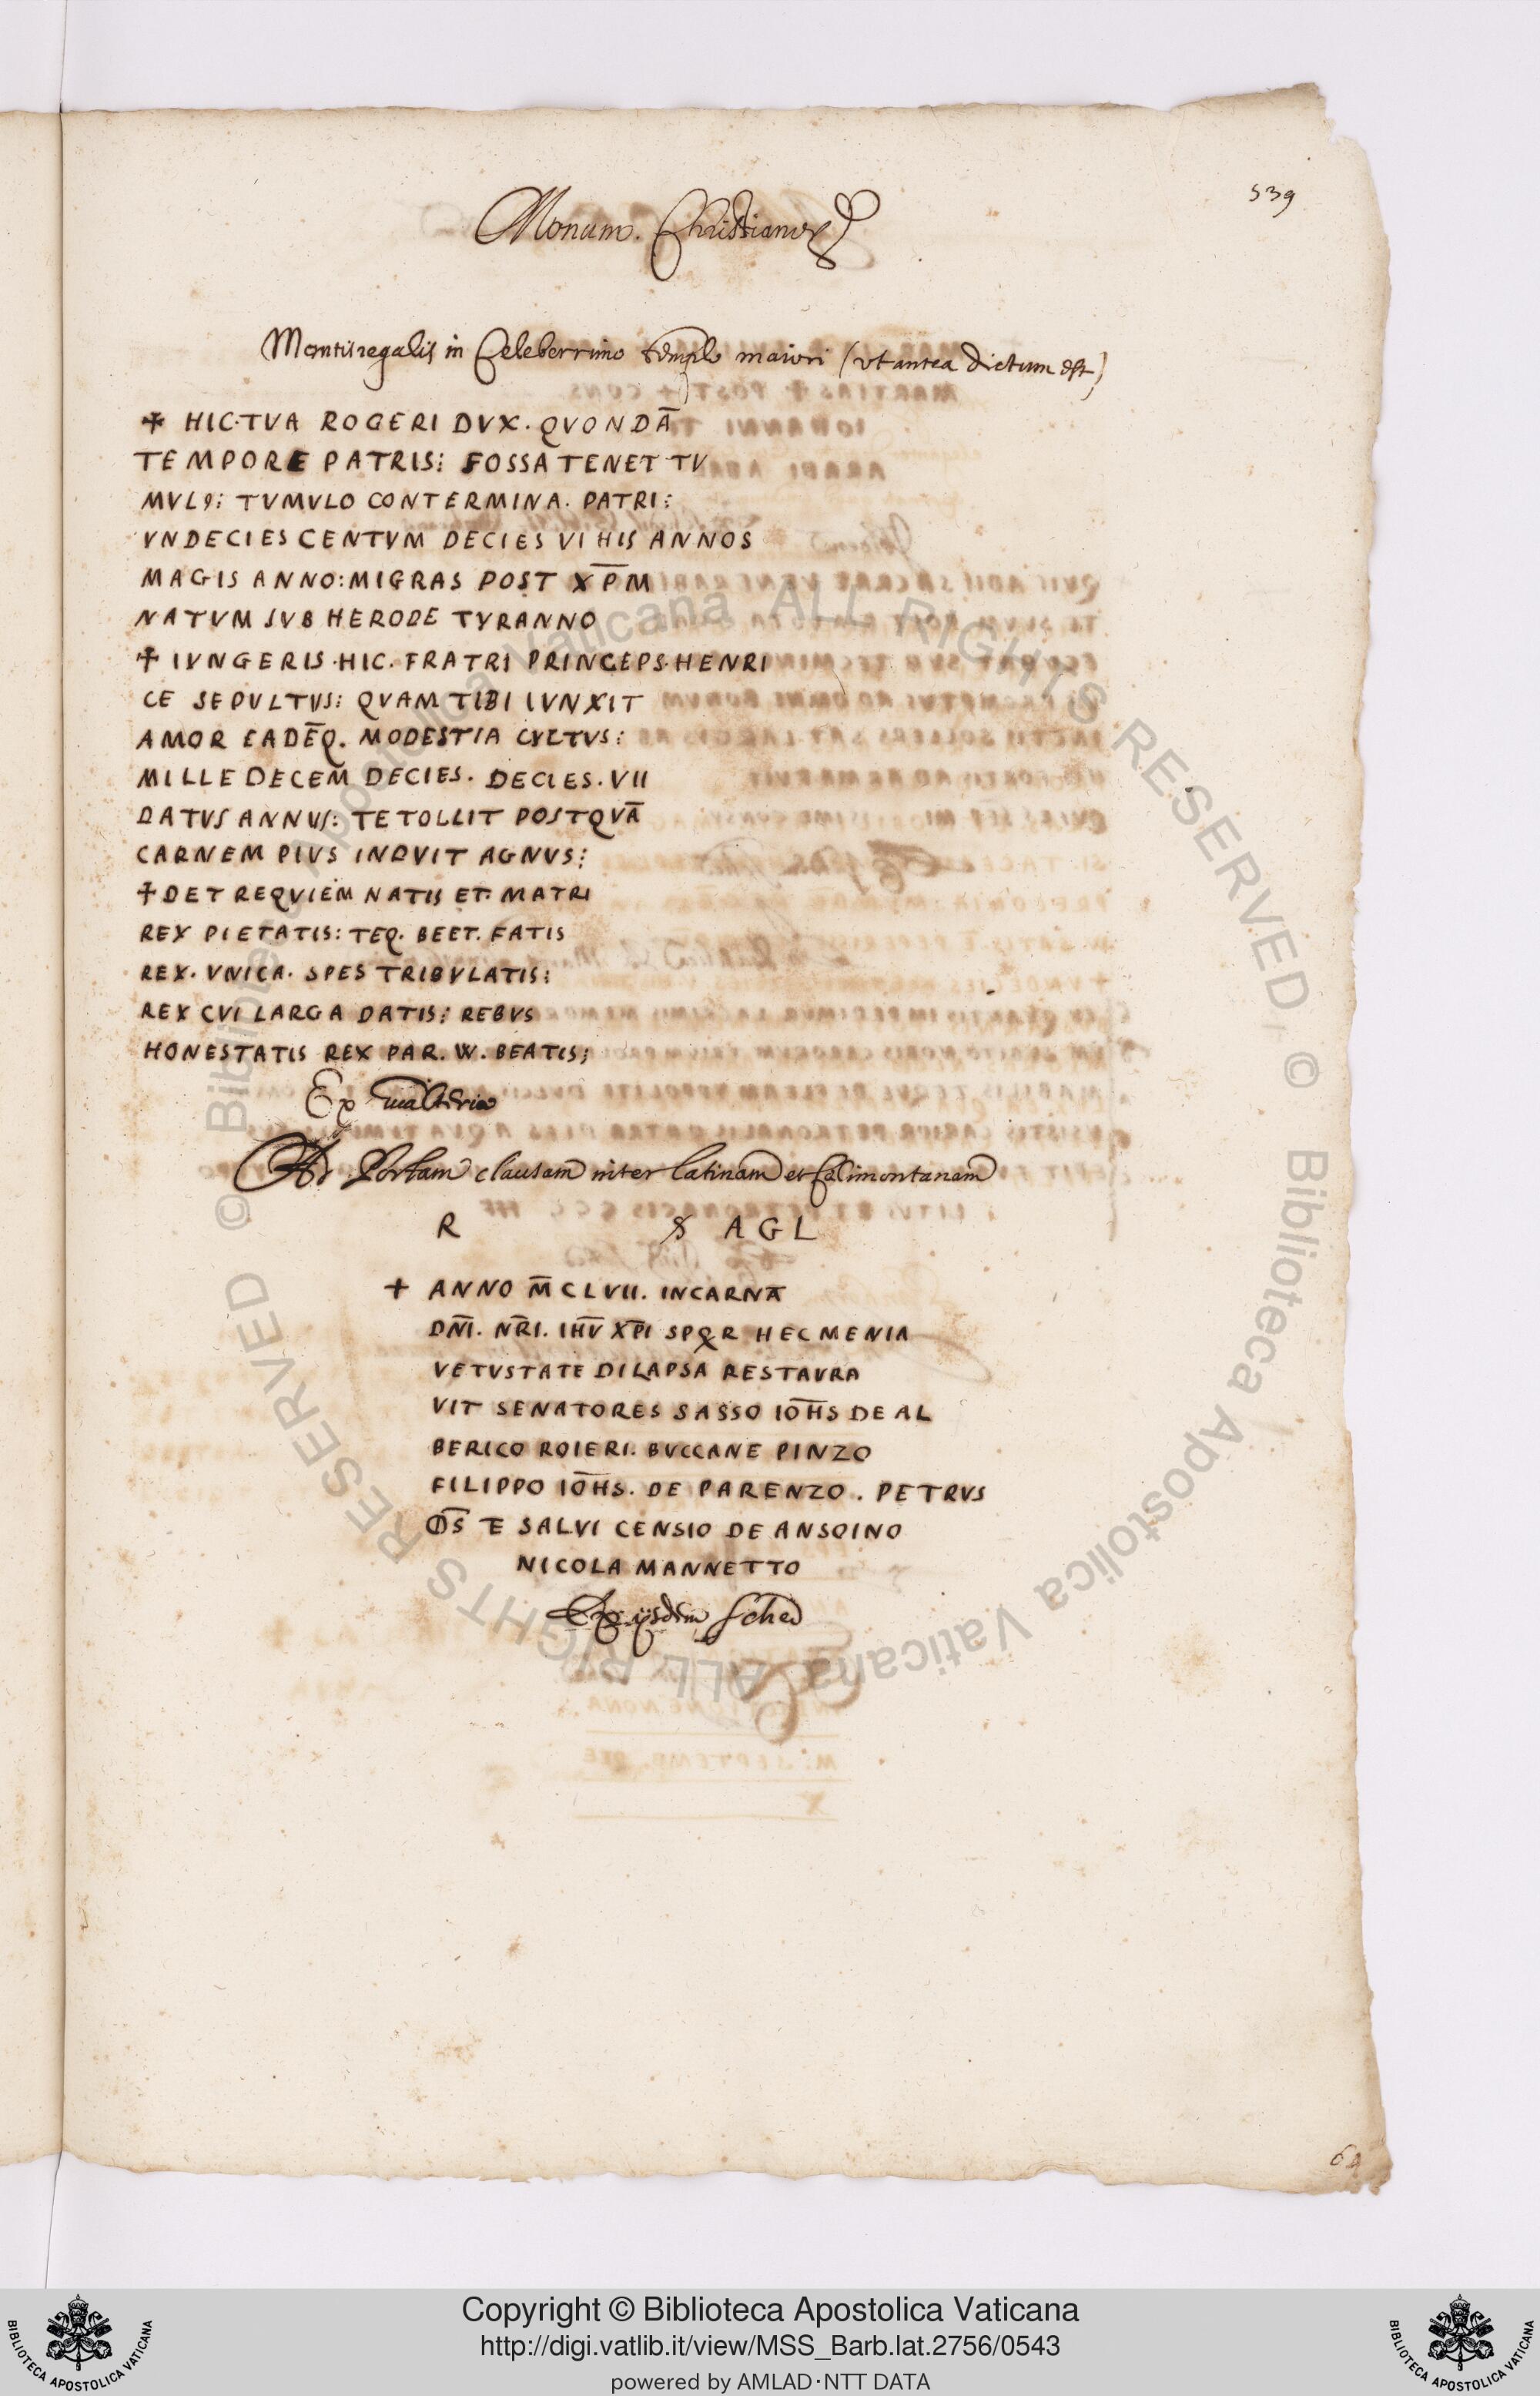 539
Monum. Christianor
Montisregalis in Celeberrimo templo maiori (ut antea dictum est)
✠ HIC·TVA ROGERI DVX. QVONDĀ
TEMPORE PATRIS: FOSSA TENET TV
MVLꝰ: TVMVLO CONTERMINA. PATRI:
VNDECIES CENTVM DECIES VI HIS ANNOS
MAGIS ANNO: MIGRAS POST XP̄M
NATVM SVB HERODE TYRANNO
✠ IVNGERIS·HIC. FRATRI PRINCEPS·HENRI
CE SEPVLTVS: QVAM TIBI IVNXIT
AMOR EADĒQ. MODESTIA CVLTVS:
MILLE DECEM DECIES. DECIES. VII
DATVS ANNVS: TE TOLLIT POSTQVĀ
CARNEM PIVS INDVIT AGNVS:
✠ DET REQVIEM NATIS ET· MATRI
REX PIETATIS: TEQ. BEET. FATIS
REX. VNICA. SPES TRIBVLATIS:
REX CVI LARGA DATIS: REBVS
HONESTATIS REX PAR. W. BEATIS;
Ex
Ad Portam clausam inter latinam et Celimontanam
R S AGL
+ ANNO M̄CLVII. INCARNĀ
DN̄I. NR̄I. IHV̄ XP̄I SPQR HEC MENIA
VETVSTATE DILAPSA RESTAVRA
VIT SENATORES SASSO IOH̄S DE AL
BERICO ROIERI. BVCCANE PINZO
FILIPPO IOH̄S. DE PARENZO. PETRVS
D̄S TE SALVI CENSIO DE ANSOINO
NICOLA MANNETTO
Ex ijsdem sched
Copyright © Biblioteca Apostolica Vaticana
http://digi.vatlib.it/view/MSS_Barb.lat.2756/0543
powered by AMLAD·NTT DATA
BIBLIOTECA APOSTOLICA VATICANA
BIBLIOTECA APOSTOLICA VATICANA
© Biblioteca Apostolica Vaticana ALL RIGHTS RESERVED
© Biblioteca Apostolica Vaticana ALL RIGHTS RESERVED